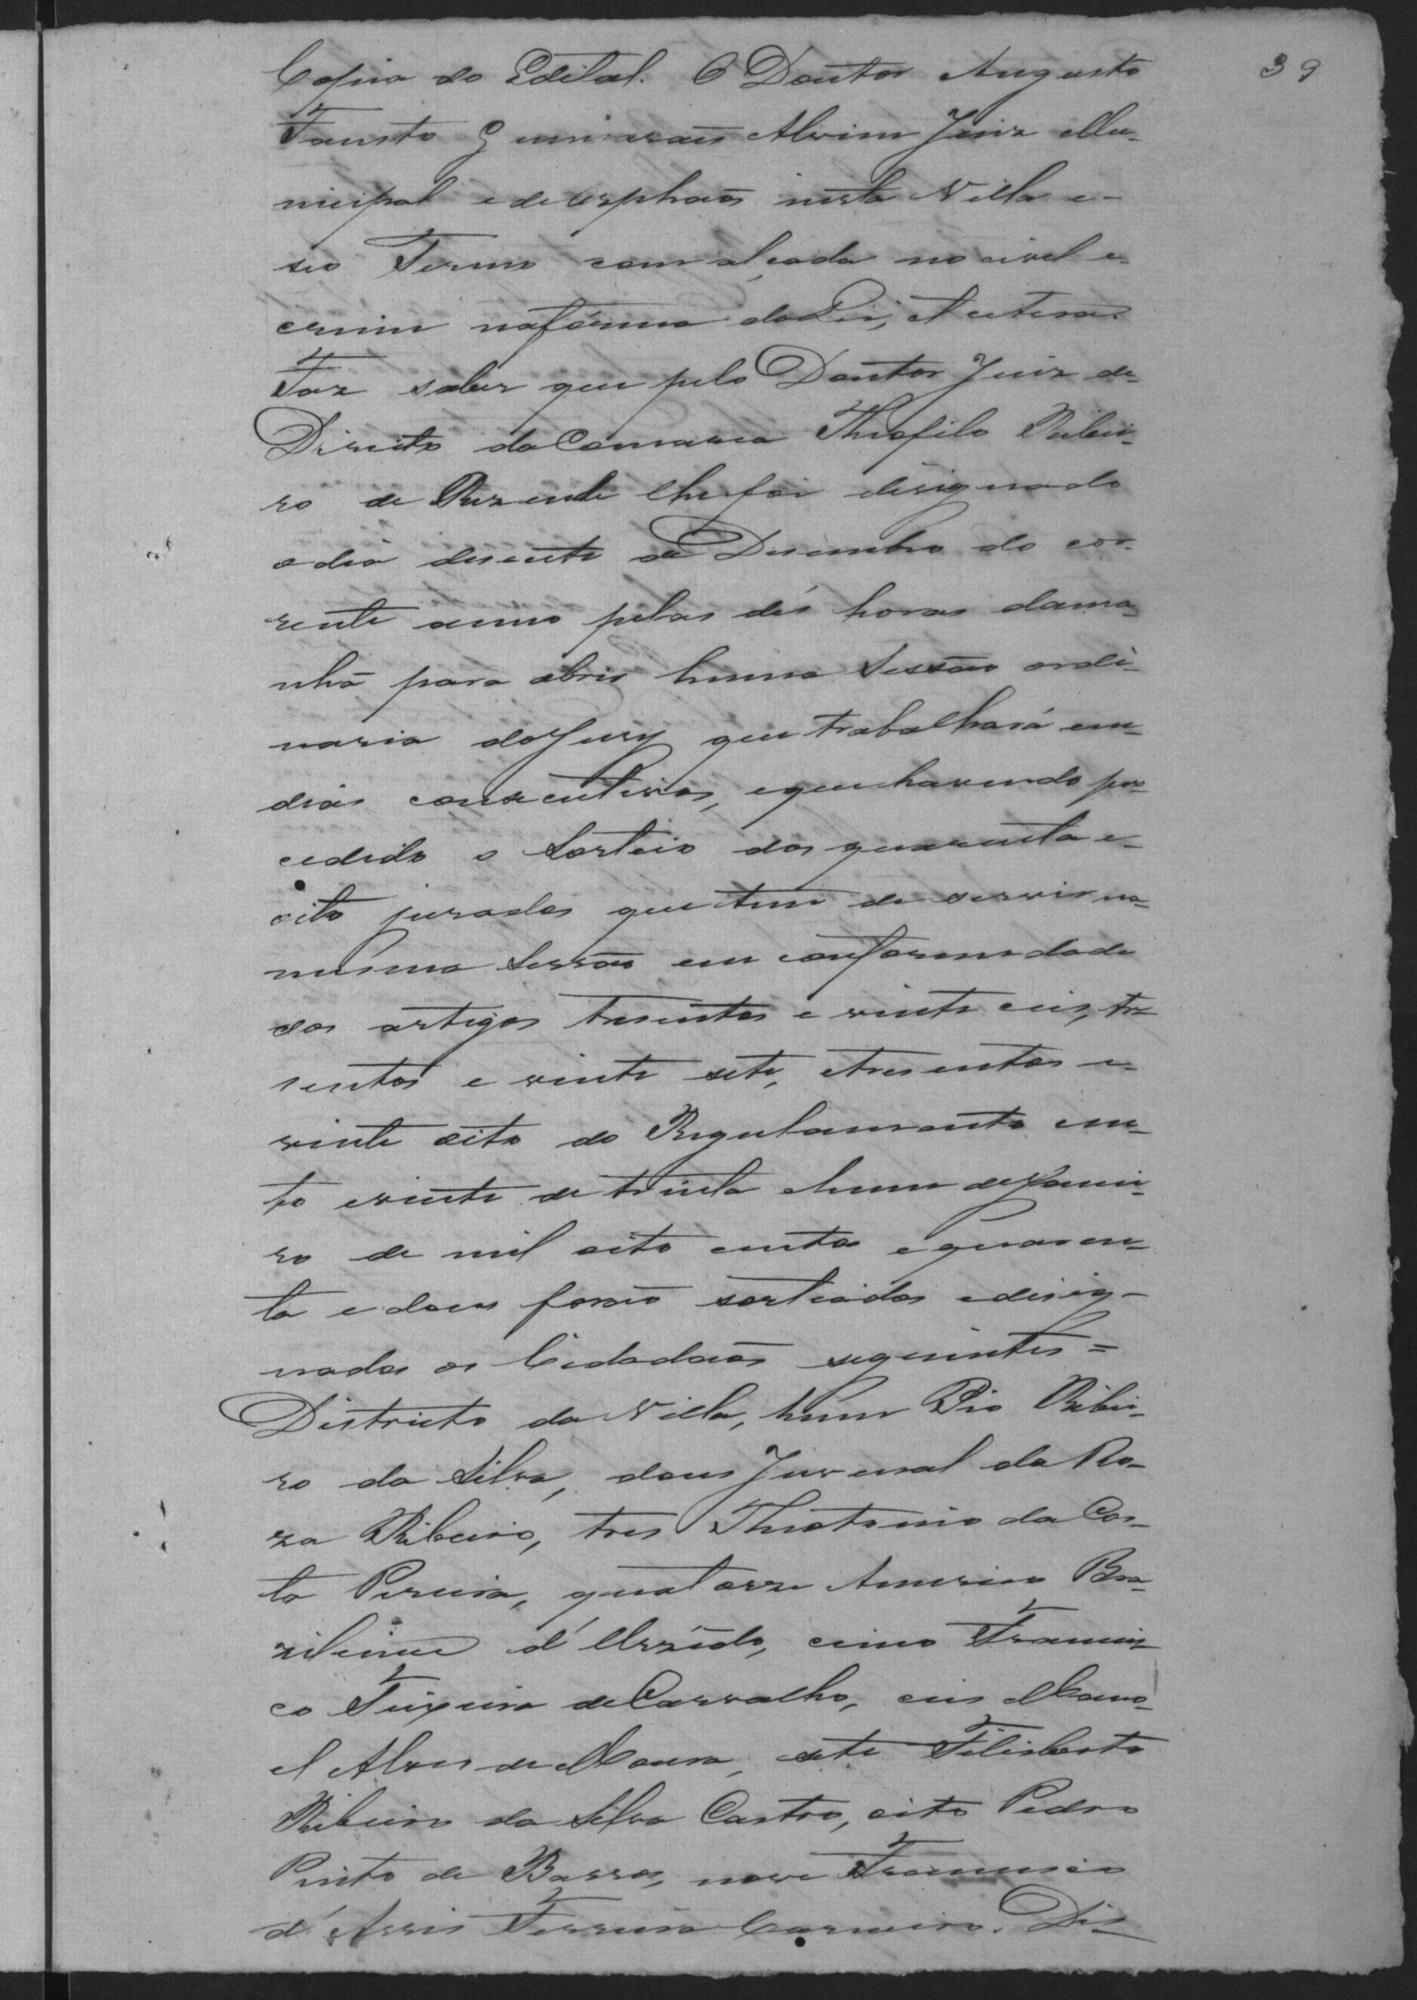 39
Copia do Edital. O Doutor Augusto
Fausto Guimaraẽs Alvim Juiz Mu-
nicipal e de Orphaõs nesta Villa e
seo Termo com alçada no civel e
crime na fórma da Lei, et cetera
Faz saber que pelo Doutor Juiz de
Direito da Comarca Theofilo Ribei-
ro de Rezende lhe foi designado
o dia deseete de Desembro do cor-
rente anno pelas dés horas dama-
nhã para abrir huma Sessaõ ordi-
naria do Jury que trabalhará em
dias consecutivos, e que havendo pro-
cedido o Sorteio dos quarenta e
oito jurados que tem de servir na
mesma Sessaõ em conformidade
dos artigos tresentos e vinte ceis, tre-
sentos e vinte sete, e tresentos e
vinte oito do Regulamento cen-
to e vinte de trinta e hum de Janei-
ro de mil oito centos e quaren-
ta e dous foraõ sorteados e desig-
nados os Cidadaõs seguintes =
Districto da Villa, hum Pio Ribei-
ro da Silva, dous Juvenal da Ro-
za Ribeiro, tres Theotonio da Cos-
ta Pereira, quatorze Americo Bra-
ziliense d'
cinco Francis-
co Teixeira de Carvalho, ceis Mano-
el Alves de Moura, sete Felisberto
Ribeiro da Silva Castro, oito Pedro
Pinto de Barros, nove Francisco
d'Assis Ferreira Carneiro. Dis-